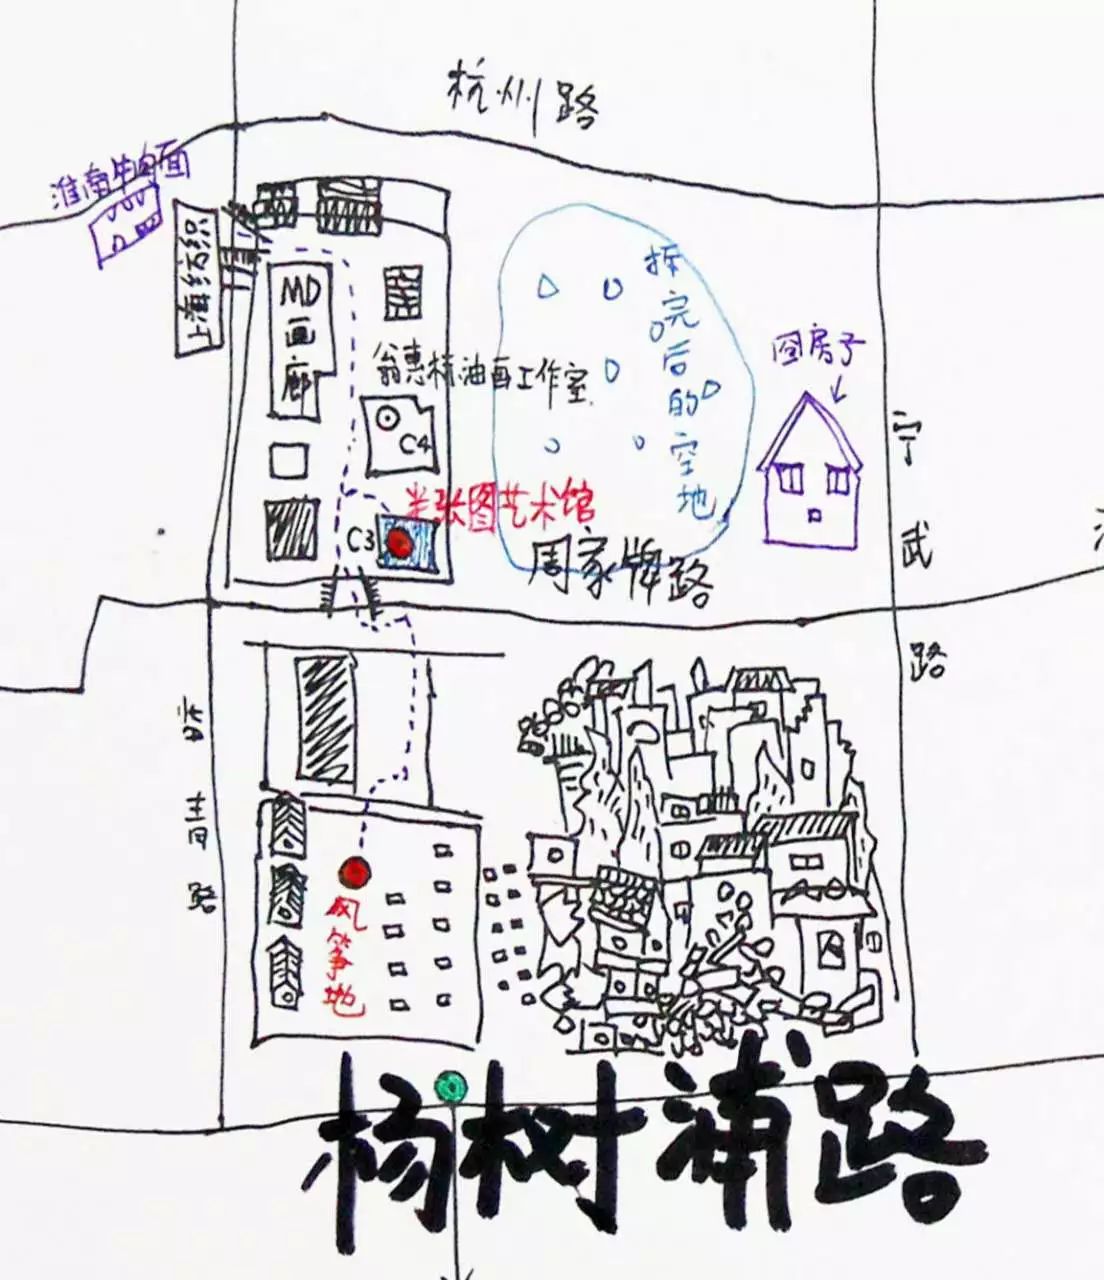 杭州路
淮南牛肉面
上海纺织
MD
画
廊
翁惠 油画工作室
C4
拆完后的空地
囧房子
半张图艺术馆
C3
周家牌路
宁武路
路
风筝地
杨树浦路